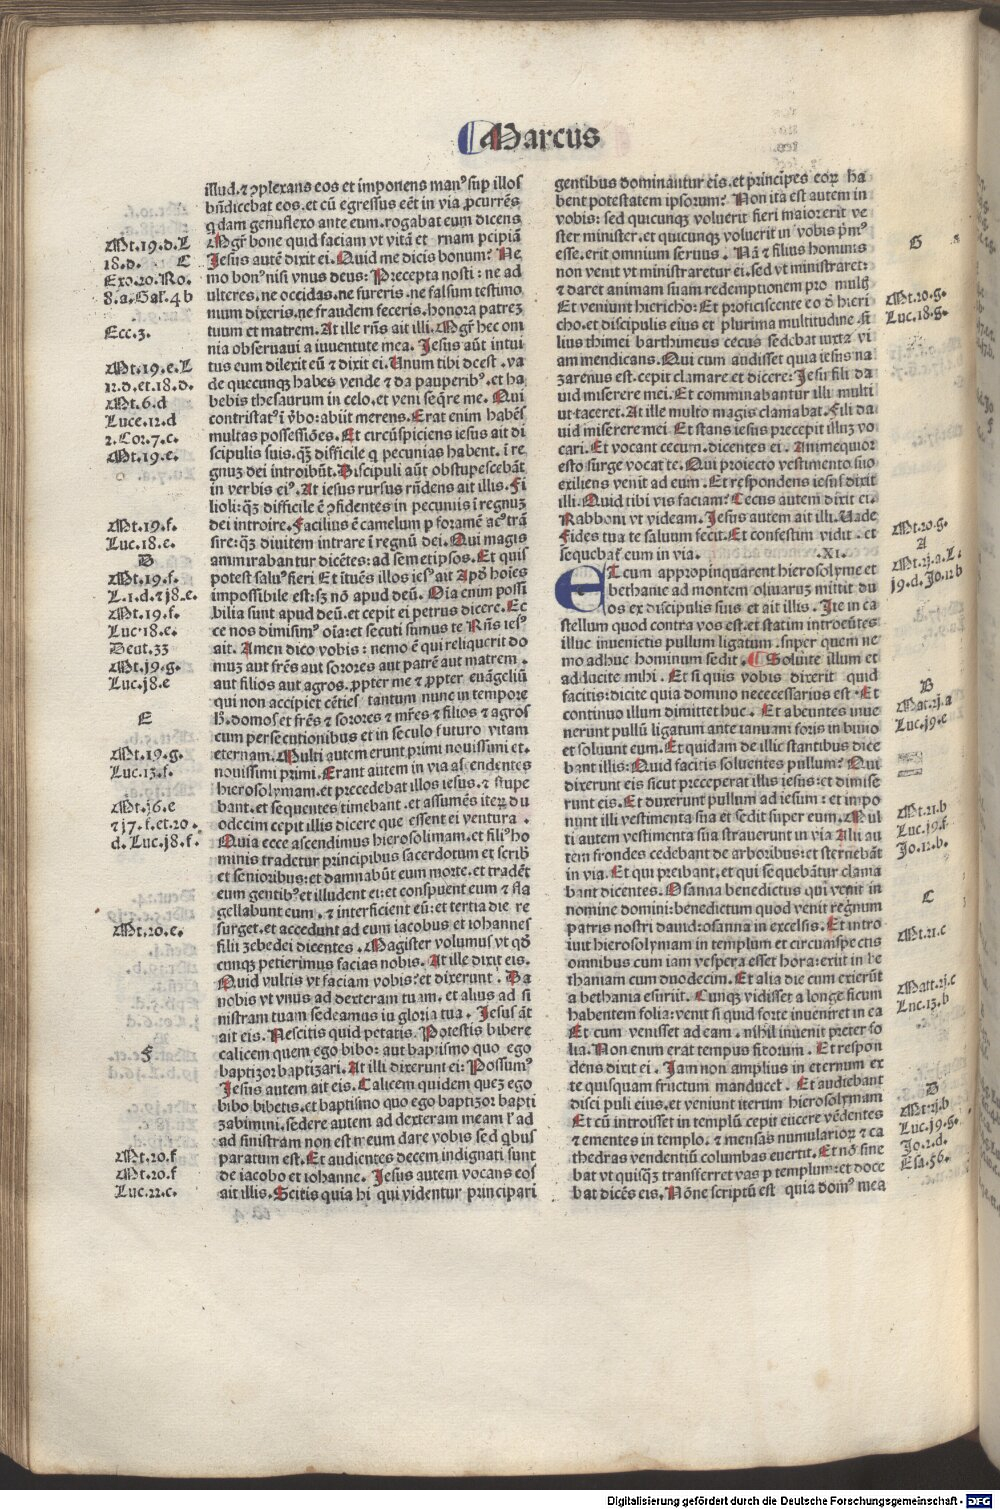 Marcus
illud. ⁊ ꝯplexans eos et imponens manꝰ sup illos
bñdicebat eos. et cū egressus eēt in via ꝓcurrēs
q dam genuflexo ante eum. rogabat eum dicens
Mgr̄ bone quid faciam vt vitā et rnam pcipiā
Jesus autē dixit ei. Quid me dicis bonum? Ne
mo bonꝰ nisi vnus deus: Precepta nosti: ne ad
ulteres. ne occidas. ne fureris. ne falsum testimo
nium dixeris. ne fraudem feceris. honora patreꝫ
tuum et matrem. At ille rn̄s ait illi. Mgr̄ hec om
nia obseruaui a iuuentute mea. Jesus aūt intui
tus eum dilexit eū ⁊ dixit ei. Unum tibi deest. va
de quecunqꝫ habes vende ⁊ da pauperibꝰ. et ha
bebis thesaurum in celo. et veni seq̄re me. Qui
contristatꝰ ī v̄bo: abijt merens. Erat enim habēs
multas possessiões. Et circūspiciens iesus ait di
scipulis suis. qꝫ difficile q pecunias habent. ī re
gnuꝫ dei introibūt. Discipuli aūt obstupescebāt
in verbis eiꝰ. At iesus rursus rn̄dens ait illis. Fi
lioli: qꝫ difficile ē ꝯfidentes in pecunijs ī regnuꝫ
dei introire. Facilius ē camelum p foramē acꝰ trā
sire: qꝫ diuitem intrare ī regnū dei. Qui magis
ammirabantur dicētes: ad semetipsos. Et quis
potest saluꝰ fieri Et ītuēs illos iesꝰ ait Apd̄ hoīes
impossibile est: sꝫ nō apud deū. Oīa enim possi
bilia sunt apud deū. et cepit ei petrus dicere. Ec
ce nos dimisimꝰ oīa: et secuti sumus te Rn̄s iesꝰ
ait. Amen dico vobis: nemo ē qui reliquerit do
muꝫ aut frēs aut sorores aut patrē aut matrem.
aut filios aut agros. ꝓpter me ⁊ ꝓpter euāgeliū
qui non accipiet cēties tantum nunc in tempore
h̄. domos et frēs ⁊ sorores ⁊ mr̄es ⁊ filios ⁊ agros
cum persecutionibus et in seculo futuro vitam
eternam. Multi autem erunt primi nouissimi et.
nouissimi primi. Erant autem in via ascendentes
hierosolymam. et precedebat illos iesus. ⁊ stupe
bant. et sequentes timebant. et assumēs iteꝝ du
odecim cepit illis dicere que essent ei ventura.
Quia ecce ascendimus hierosolimam. et filiꝰ ho
minis tradetur principibus sacerdotum et scrib
et senioribus: et damnabūt eum morte. et tradēt
eum gentibꝰ et illudent ei: et conspuent eum ⁊ fla
gellabunt eum. ⁊ interficient eū: et tertia die re
surget. et accedunt ad eum iacobus et iohannes
filij zebedei dicentes. Magister volumus vt qd̄
cunqꝫ petierimus facias nobis. At ille dixit eis.
Quid vultis vt faciam vobis: et dixerunt. Da
nobis vt vnus ad dexteram tuam. et alius ad si
nistram tuam sedeamus in gloria tua. Jesus āt
ait eis. Nescitis quid petatis. Potestis bibere
calicem quem ego bibo: aut baptismo quo ego
baptizor baptizari. At illi dixerunt ei: Possumꝰ
Jesus autem ait eis. Calicem quidem queꝫ ego
bibo bibetis. et baptismo quo ego baptizor bapti
zabimini. sedere autem ad dexteram meam l' ad
ad sinistram non est meum dare vobis sed qbus
paratum est. Et audientes decem indignati sunt
de iacobo et iohanne. Jesus autem vocans eos
ait illis. Scitis quia hi qui videntur principari
gentibus dominantur eis. et principes eoꝝ ha
bent potestatem ipsorum? Non ita est autem in
vobis: sed quicunqꝫ voluerit fieri maior erit ve
ster minister. et quicunqꝫ voluerit in vobis pmꝰ
esse. erit omnium seruus. Nā ⁊ filius hominis
non venit vt ministraretur ei. sed vt ministraret:
⁊ daret animam suam redemptionem pro mult
Et veniunt hiericho: Et proficiscente eo ð hieri
cho. et discipulis eius et plurima multitudine fi
lius thimei barthimeus cecus sedebat iuxta vi
am mendicans. Qui cum audisset quia iesus na
zarenus est. cepit clamare et dicere: Jesu fili da
uid miserere mei. Et comminabantur illi multi
ut taceret. At ille multo magis clamabat. Fili da
uid miserere mei. Et stans iesus precepit illuꝫ vo
cari. Et vocant cecum. dicentes ei. Animequior
esto surge vocat te. Qui proiecto vestimento suo
exiliens venit ad eum. Et respondens iesus dixit
illi. Quid tibi vis faciam? Cecus autem dixit ei.
Rabboni vt videam. Jesus autem ait illi. Uade
Fides tua te saluum fecit. Et confestim vidit. et
seq̄uebat eum in via. .XI.
ETcum appropinquarent hierosolyme et
bethanie ad montem oliuaruꝫ mittit du
os ex discipulis suis et ait illis. Ite in ca
stellum quod contra vos est. et statim introeūtes
illuc inuenietis pullum ligatum. super quem ne
mo adhuc hominum sedit. Soluite illum et
adducite mihi. Et si quis vobis dixerit quid
facitis: dicite quia domino nececessarius est. Et
continuo illum dimittet huc. Et abeuntes inue
nerunt pullū ligatum ante ianuam foris in biuio
et soluunt eum. Et quidam de illic stantibus dice
bant illis: Quid facitis soluentes pullum? Qui
dixerunt eis sicut preceperat illus iesus: et dimise
runt eis. Et duxerunt pullum ad iesum: et impo
nunt illi vestimenta sua et sedit super eum. Mul
ti autem vestimenta sua strauerunt in via Alij au
tem frondes cedebant de arboribus: et sternebāt
in via. Et qui preibant. et qui sequebātur clama
bant dicentes. Osanna benedictus qui venit in
nomine domini: benedictum quod venit regnum
patris nostri dauid: osanna in excelsis. Et intro
iuit hierosolymam in templum et circumspectis
omnibus cum iam vespera esset hora: exiit in be
thaniam cum duodecim. Et alia die cum exierūt
a bethania esurijt. Cunqꝫ vidisset a longe ficum
habentem folia: venit si quid forte inueniret in ea
Et cum venisset ad eam. nihil inuenit preter fo
lia. Non enim erat tempus ficorum. Et respon
dens dixit ei. Jam non amplius in eternum ex
te quisquam fructum manducet. Et audiebant
disci puli eius. et veniunt iterum hierosolymam
Et cū introisset in templū cepit eijcere vēdentes
⁊ ementes in templo. ⁊ mensas numularioꝝ ⁊ ca
thedras vendentiū columbas euertit. Et nō sine
bat vt quisqꝫ transferret vas p templum: et doce
bat dicēs eis. Nōne scriptū est quia domꝰ mea
Mt.19.d.L
18.d. C
Exo.20.Ro.
8.a.Gal.4 b
Ecc.3.
Mt.19.e.L
12.d.et.18.d.
Mt.6.d
Luce.12.d
2.Cor.7.c.
Mt.19.e.
Mt.19.f.
Luc.18.e.
D
Mt.19.f.
L.1.d.⁊ j8.e.
Mt.19.f.
Luc.18.e.
Deut.33
Mt.j9.g.
Luc.j8.e
E
Mt.19.g.
Luc.13.f.
Mt.j6.e
⁊ j7.f.et.20.
d.Luc.j8.f.
Mt.20.e.
F
Mt.20.f
Mt.20.f
Luc.22.c.
G
Mt.20.g.
Luc.18.g.
Mt.20.g.
A
Mt.2j.a.L.
j9.d.Jo.12 b
B
Mat.2j.a
Luc.j9.e
Mt.21.b
Luc.j9.f
Jo.12.b.
C
Mt.21.c
Matt.2j.c
Luc.13.b
D
Mt.2j.b
Luc.j9.g.
Jo.2.d.
Esa.56.
Digitalisierung gefördert durch die Deutsche Forschungsgemeinschaft - DFG